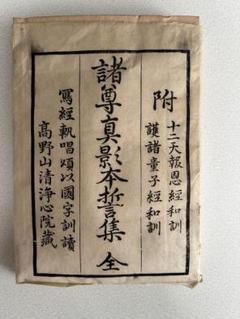 附
十二天報恩經和訓
護諸童子經和訓
諸尊真影本誓集 全
寫經執唱頌以國字訓讀
高野山清淨心院藏